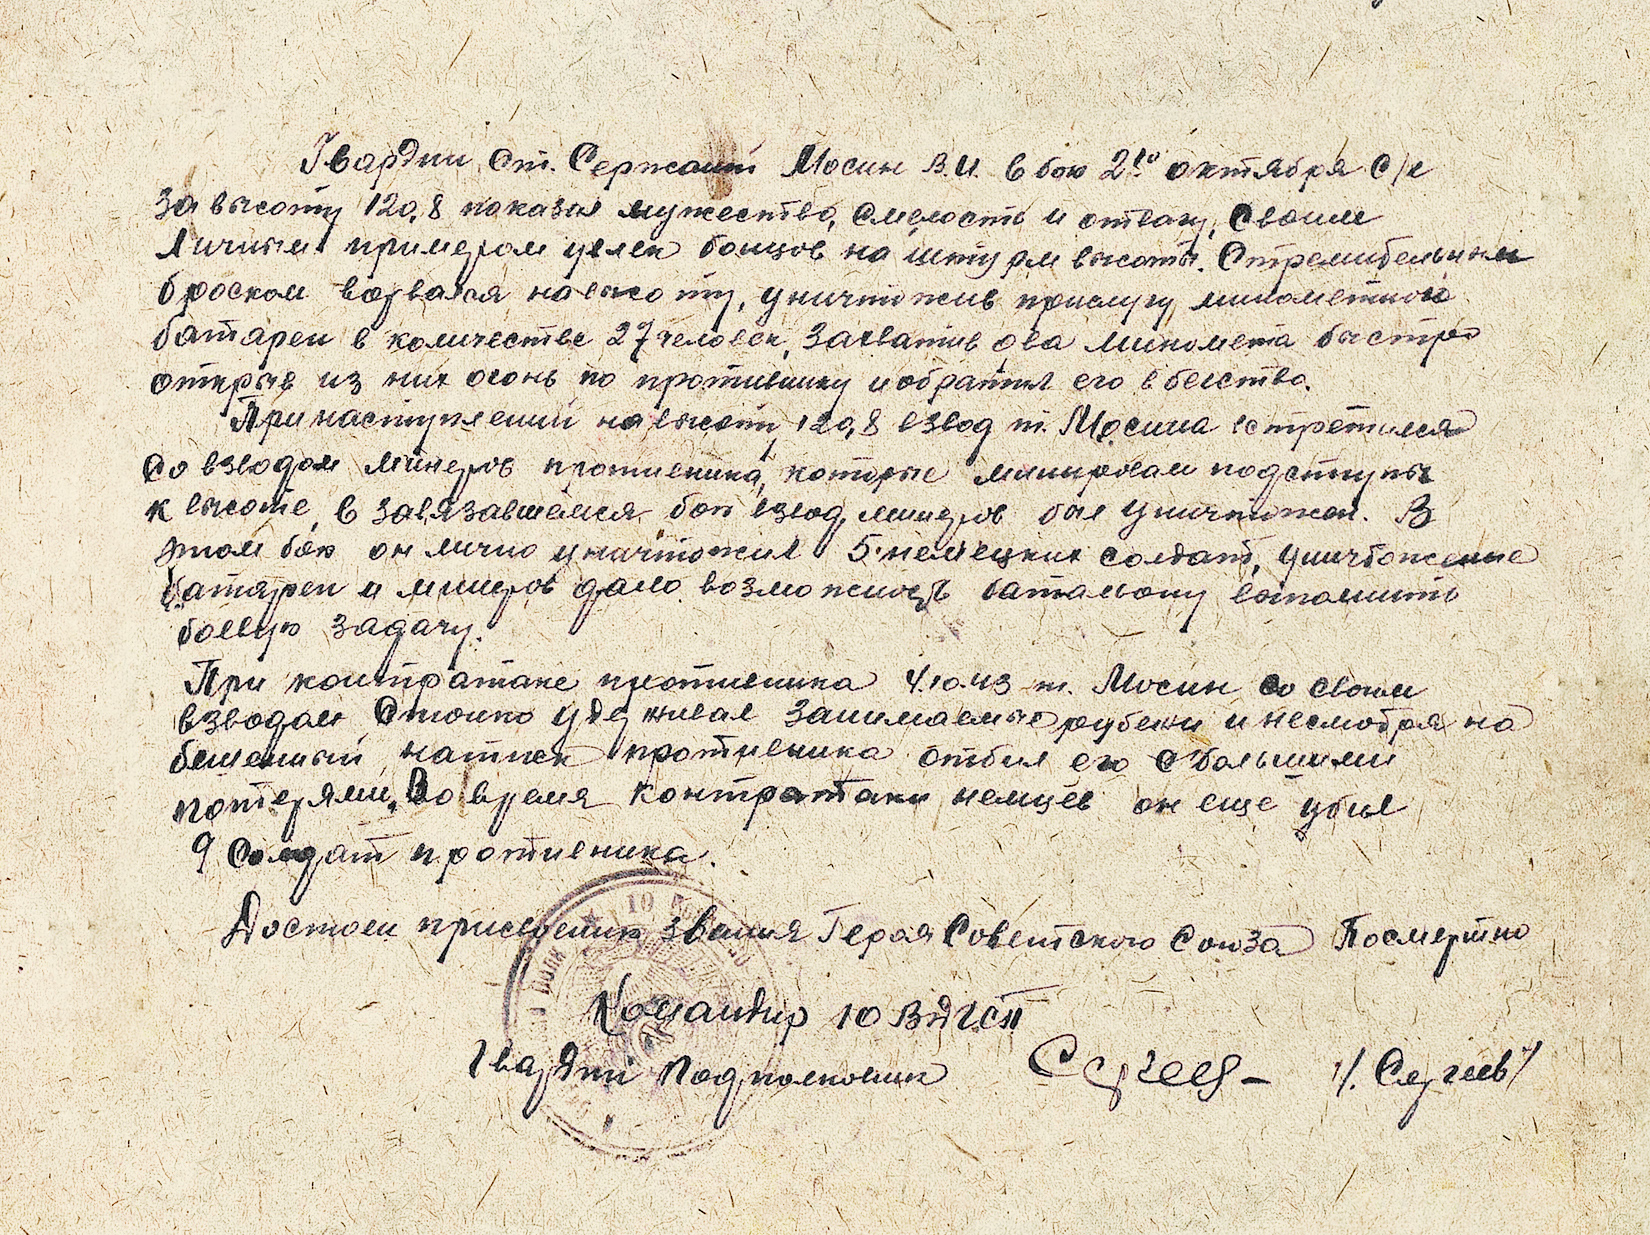 Гвардии Ст. Сержант Мосин В.И. в бою 2го октября с/г
за высоту 120,8 показал мужество, смелость и отвагу, своим
личным примером увлек бойцов на штурм высоты. Стремительным
броском ворвался на высоту, уничтожив прислугу минометной
батареи в количестве 27 человек, захватив два миномета быстро
открыв из них огонь по противнику и обратил его в бегство.
При наступлении на высоту 120,8 взвод т. Мосина встретился
со взводом минеров противника, которые минировали подступы
к высоте, в завязавшемся бою взвод минеров был уничтожен. В
этом бою он лично уничтожил 5 немецких солдат, уничтожение
батареи и минеров дало возможность батальону выполнить
боевую задачу.
При контратаке противника 4.10.43 т. Мосин со своим
взводом стойко удерживал занимаемые рубежи и несмотря на
бешенный натиск противника отбил его с большими
потерями. Во время контратаки немцев он еще убил
9 солдат противника.
Достоин присвоения звания Героя Советского Союза Посмертно
Командир 10 ВДГСП
Гвардии Подполковник Сергеев /Сергеев/